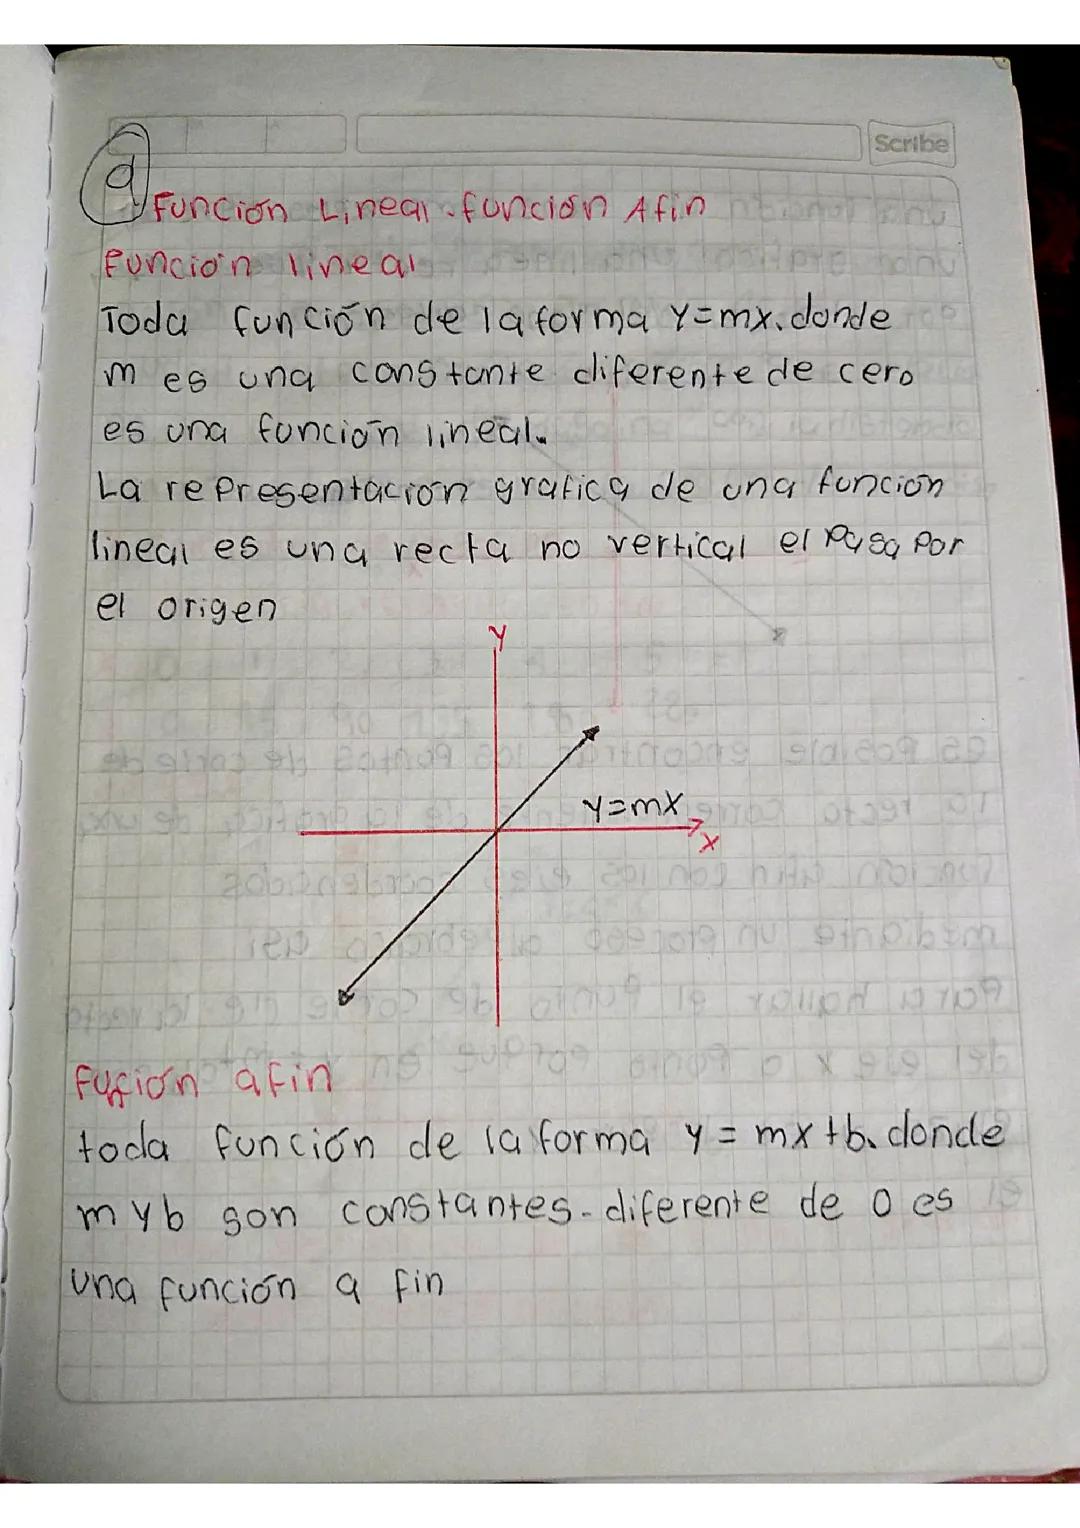 Scribe
9
Función Lineal. función Afin
función lineal
Toda función de la forma Y=mx. donde
m es una constante diferente de cero
es una función lineal.
La representación grafica de una función
lineal es una recta no vertical el Pasa Por
el origen
Y
Y=mX
X
Fución afin
toda función de la forma y = mx+b. donde
m y b son constantes. diferente de 0 es
una función a fin